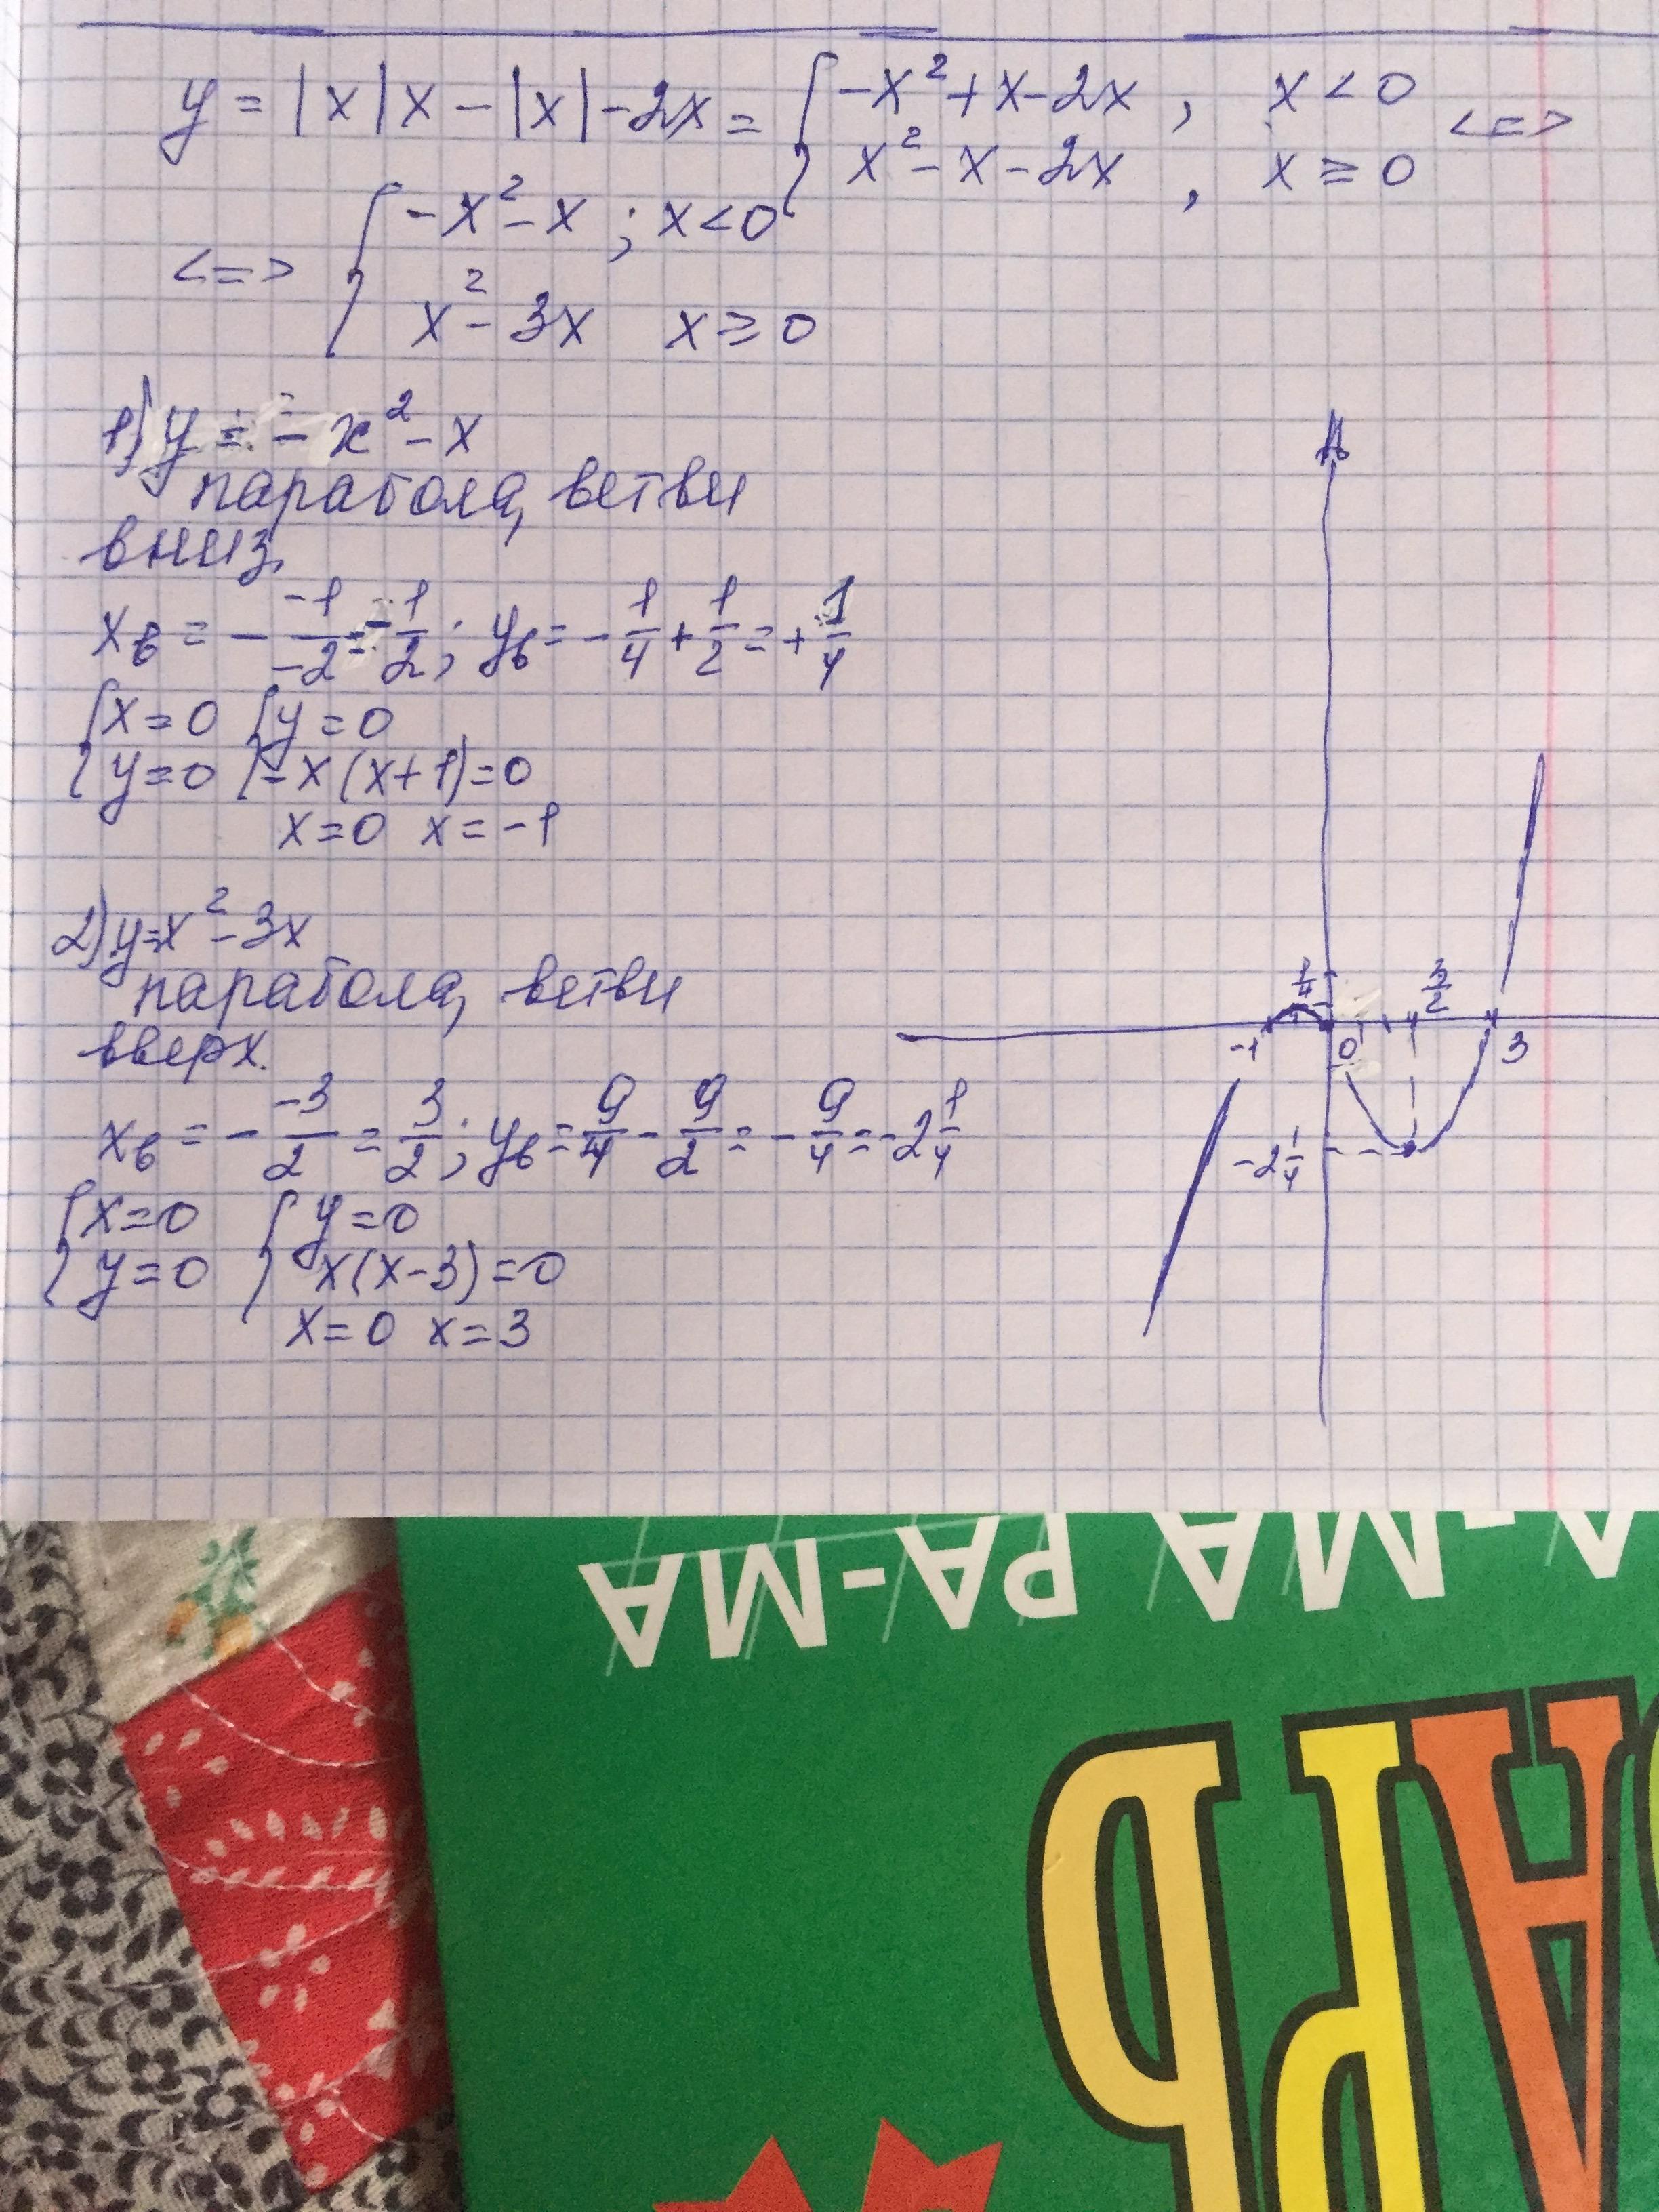 y = |x|x - |x| - 2x = { -x² + x - 2x , x < 0
x² - x - 2x , x ≥ 0 <=>
<=> { -x² - x ; x < 0
x² - 3x x ≥ 0
1) y = - x² - x
парабола, ветви
вниз.
xв = - -1/-2 = -1/2 ; yв = - 1/4 + 1/2 = + 1/4
{ x = 0 { y = 0
{ y = 0 { -x (x + 1) = 0
x = 0 x = -1
2) y = x² - 3x
парабола, ветви
вверх.
xв = - -3/2 = 3/2 ; yв = 9/4 - 9/2 = - 9/4 = -2 1/4
{ x = 0 { y = 0
{ y = 0 { x(x - 3) = 0
x = 0 x = 3
1/4
3/2
-1 0 1 3
-2 1/4
МА-РА МА-